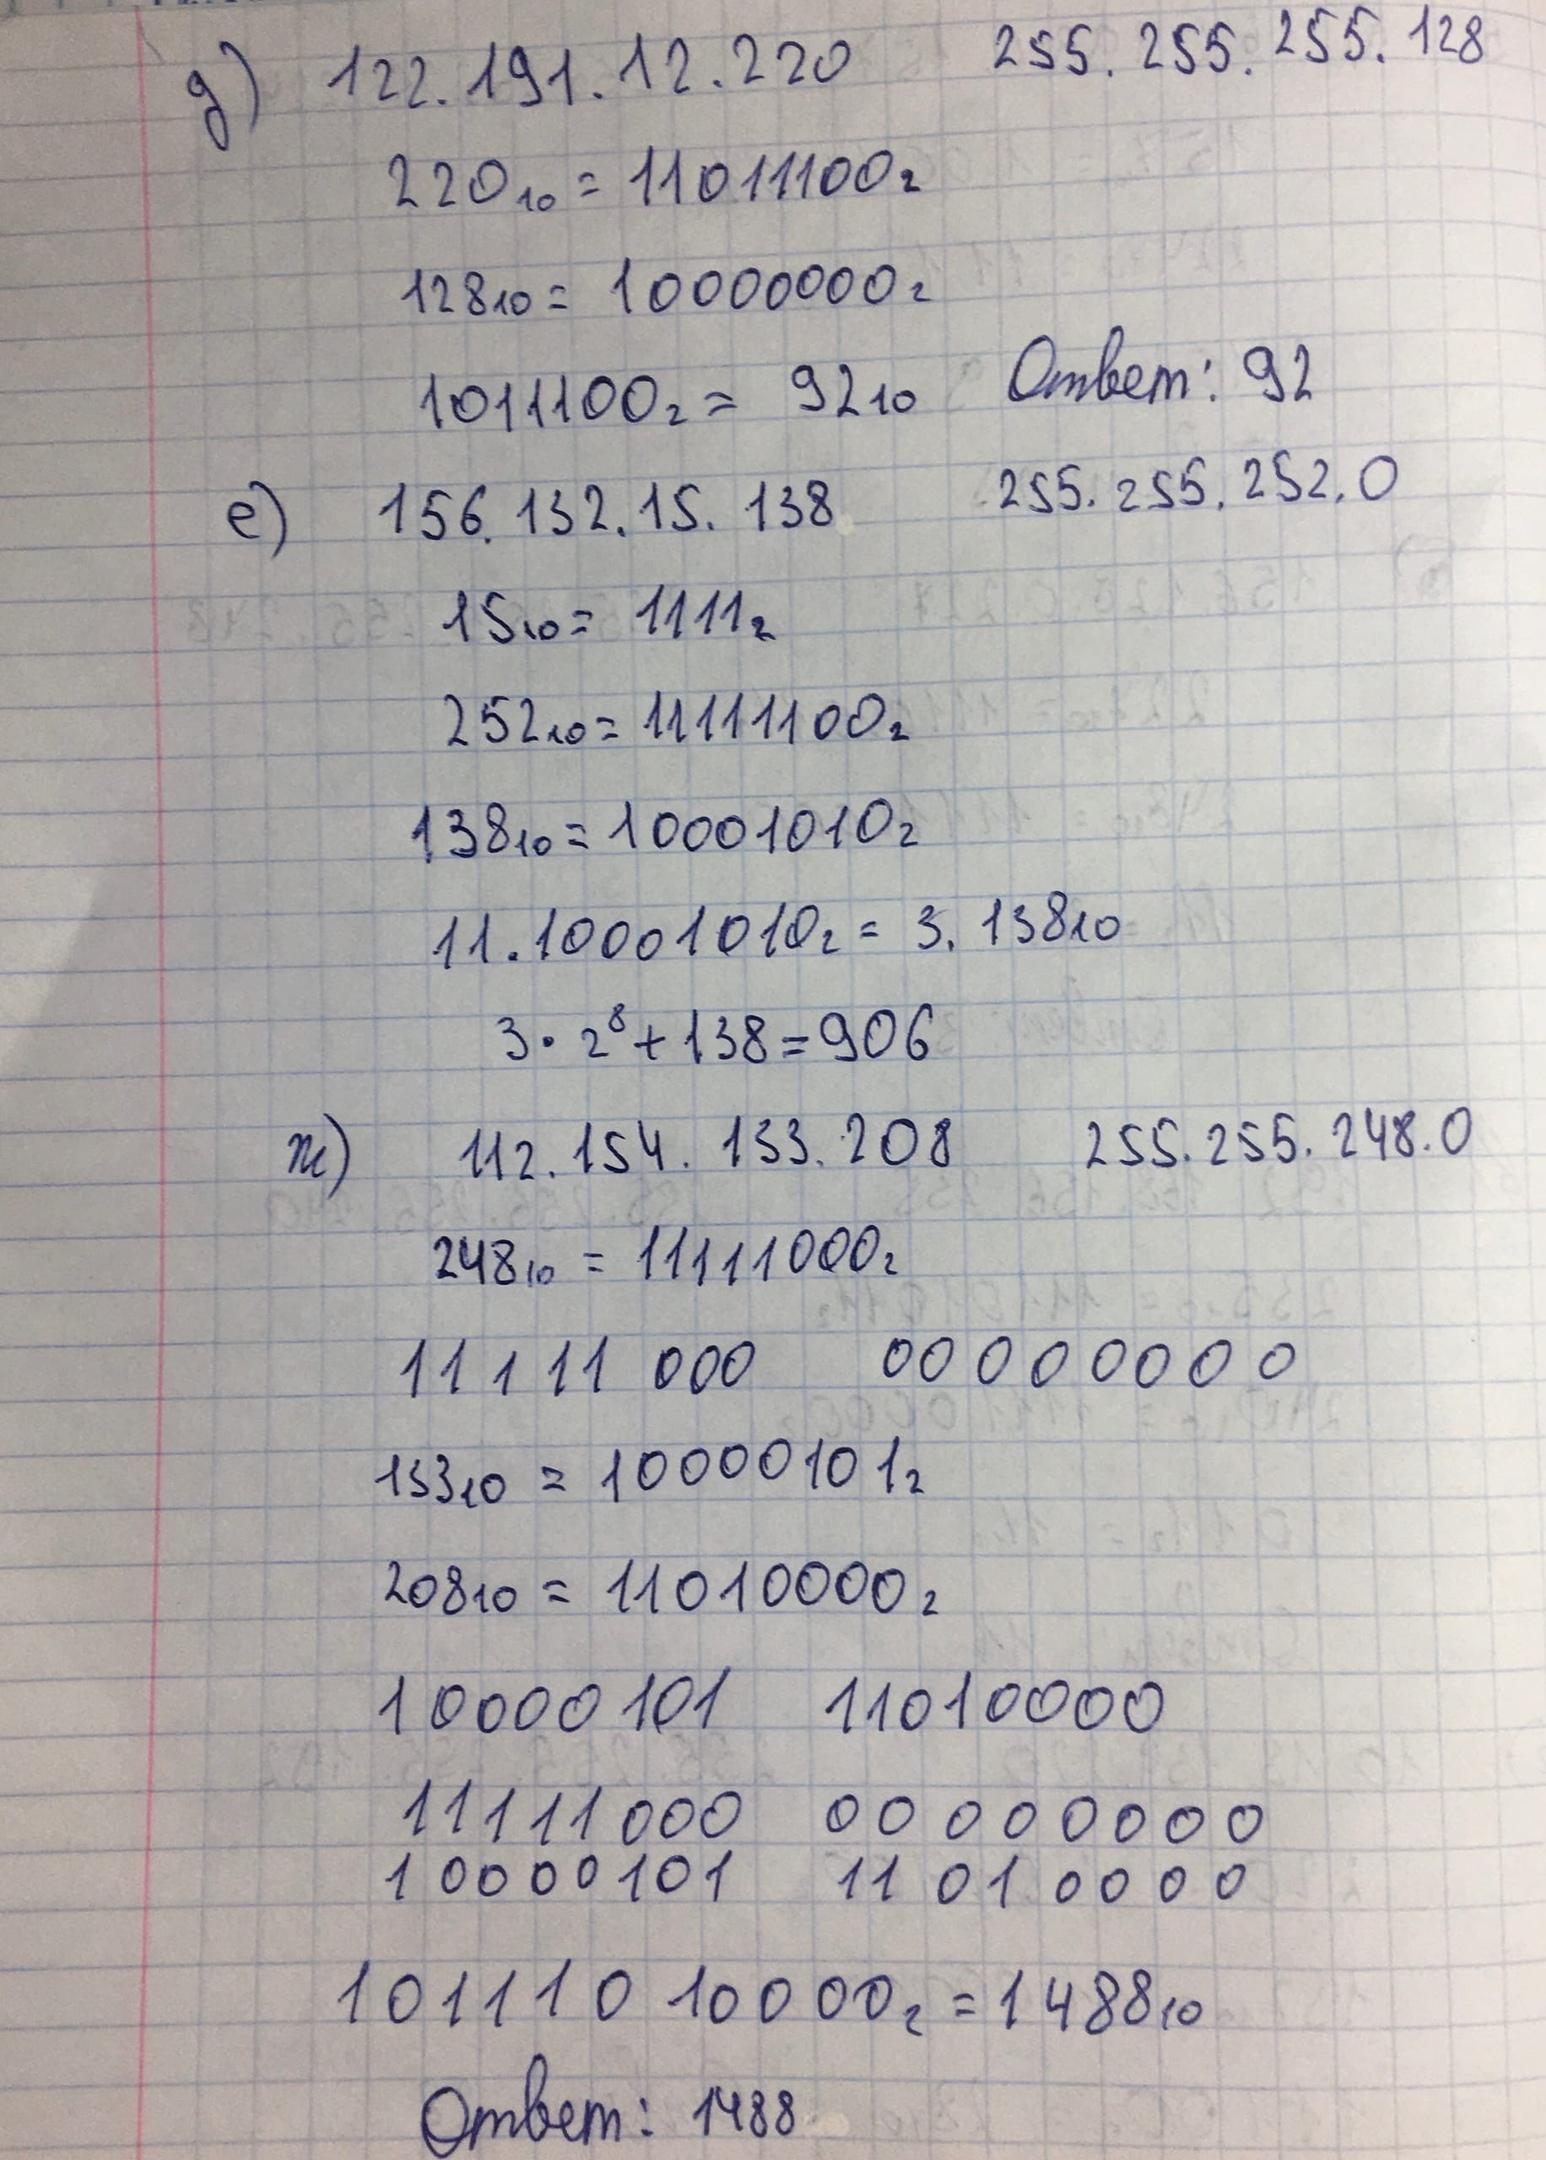 д) 122.191.12.220 255.255.255.128
220₁₀ = 11011100₂
128₁₀ = 10000000₂
1011100₂ = 92₁₀ Ответ: 92
е) 156.132.15.138 255.255.252.0
15₁₀ = 1111₂
252₁₀ = 11111100₂
138₁₀ = 10001010₂
11.10001010₂ = 3.138₁₀
3 · 2⁸ + 138 = 906
ж) 112.154.133.208 255.255.248.0
248₁₀ = 11111000₂
11111000 00000000
133₁₀ = 10000101₂
208₁₀ = 11010000₂
10000101 11010000
11111000 00000000
10000101 11010000
10111010000₂ = 1488₁₀
Ответ: 1488